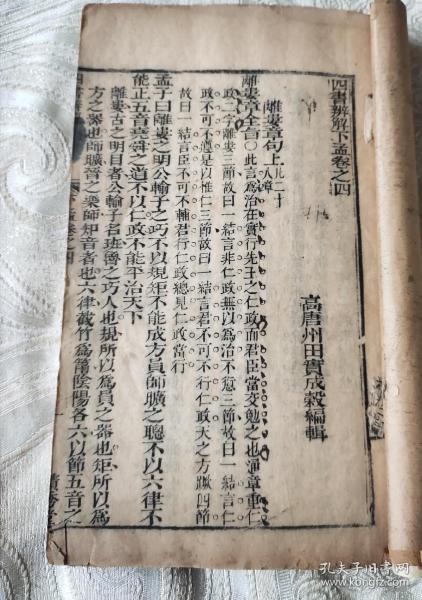 四書辨解下孟卷之四
高唐州田實成穀編輯
離婁章句上凡二十八章
離婁章全旨○此言為治在實行先王之仁政而君臣當交勉之也通章重仁
政二字離婁三節故曰一結言非仁政無以為治不愆三節故曰一結言仁
政不可不遵是以惟仁三節故曰一結言君不可不行仁政天之方蹶四節
故曰一結言臣不可不輔君行仁政總見仁政當行
孟子曰離婁之明公輸子之巧不以規矩不能成方員師曠之聰不以六律不
能正五音堯舜之道不以仁政不能平治天下
離婁古之明目者公輸子名班魯之巧人也規所以為員之器也矩所以為
方之器也師曠晉之樂師知音者也六律截竹為筩陰陽各六以節五音之
下孟卷之四
孔夫子旧书网
book.kongfz.com